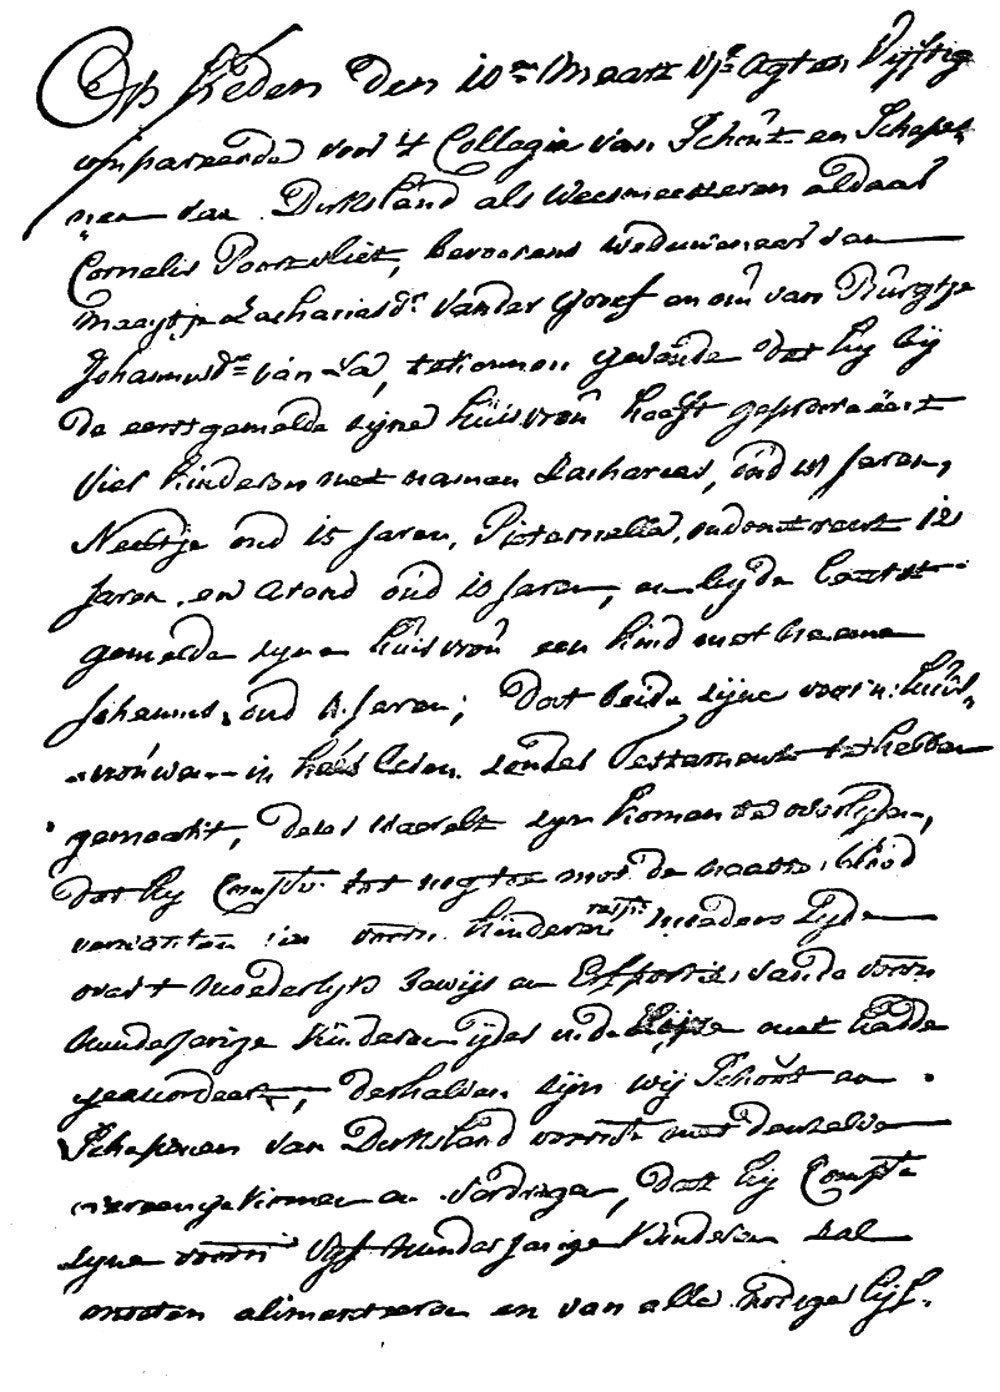 Op Heden den 10en Maart 17c Agt en Vijftig
Compareerde voor 't Collegie van Schout en Schepe-
nen van Dirksland als Weesmeesteren aldaar
Cornelis Poortvliet, bevoorens Weduwenaar van
Maaytje Zachariasdr. van der Groef en nu van Burgtje
Johannisdr van Es, te kennen gevende dat hy by
de eerstgemelde zijne huisvrou heeft geprocreëert
vier kinderen met namen Zacharias, oud 18 Jaren,
Neeltje oud 15 Jaren, Pieternella, oud omtrent 12
Jaren, en Arend oud 10 Jaren, en by de laatst
gemelde zyne huisvrou een kind met name
Johannis, oud Jaren; Dat beide zijne voorn: huis-
vrouwen in haer leven zonder Testament te hebben
gemaakt, deser waerelt zyn komen te overlyden,
dat hy Compt. tot nog toe met de naaste bloed
verwanten in voorn. kinderen respt. moeders zyde
over t moederlyk bewijs en Erfportie van de voorn
minderjarige kinderen yder in de niet hadde
geaccordeert, derhalven zijn wij Schout en
Schepenen van Dirksland voorn. met denzelve
overeengekomen en verdragen, dat hy Compt.
zyne voorn. vyf minderjarige kinderen zal
moeten alimenteren en van alle nodige lijf-